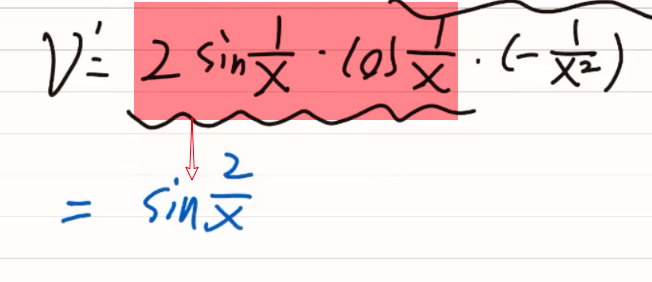 V' = 2 sin 1/x · cos 1/x · (-1/x²)
= sin 2/x